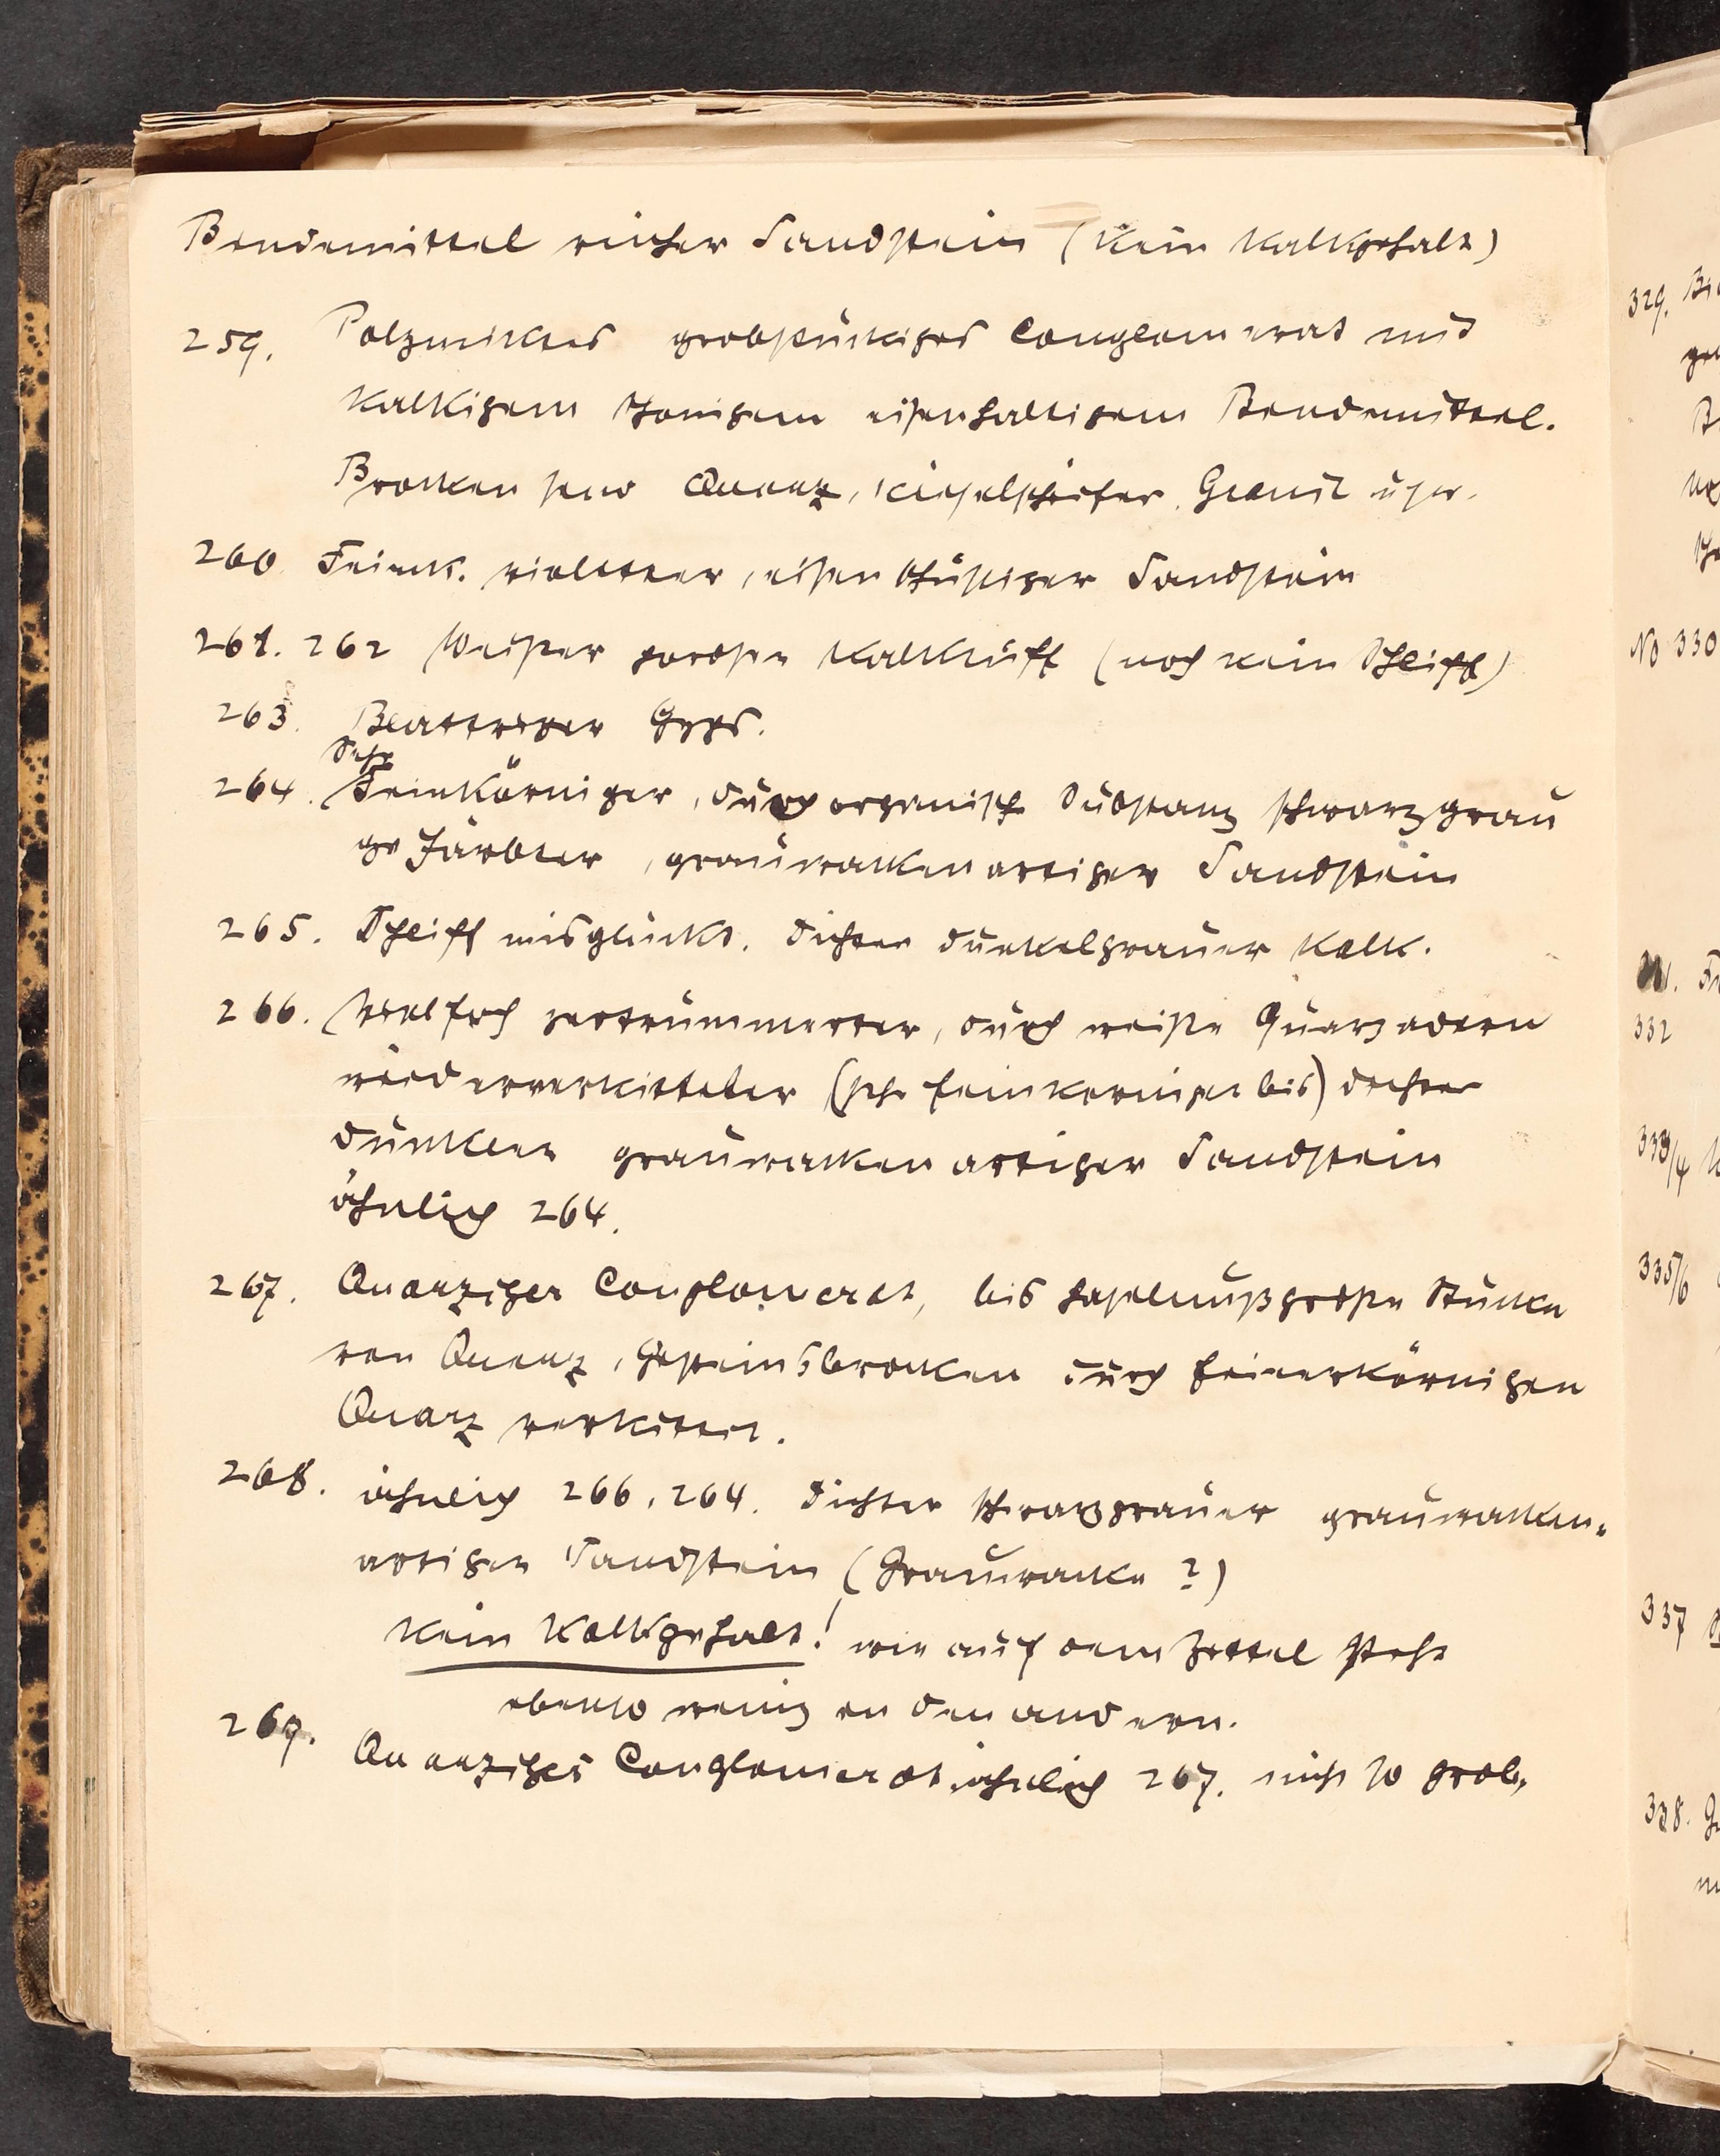 Bindemittel reicher Sandstein (kein Kalkgehalt)
259. Polymiktes grobstückiges Conglomerat mit
kalkigem thonigem eisenhaltigem Bindemittel.
Brocken sind Quarz, Kieselschiefer, Granit usw.
260 Feink. violetter, eisenschüssiger Sandstein
261. 262 Weißer poröser Kalktuff (noch kein Schliff)
263. Blättriger Gyps.
Sehr
264. Feinkörniger, durch organisch Substanz schwarzgrau
gefärbter, grauwackenartiger Sandstein
265. Schliff misglückt. Dichter dunkelgrauer Kalk.
266. Vielfach zertrümmerter, durch weiße Quarzadern
wiederverkitteter (sehr feinkörniger bis) dichter
dunkler grauwackenartiger Sandstein
ähnlich 264.
267. Quarziges Conglomerat, bis haselnußgroße Stücke
von Quarz, Gesteinsbrocken durch feinerkörnigen
Quarz verkittet.
268. ähnlich 266, 264. Dichter schwarzgrauer grauwacken-
artiger Sandstein (Grauwacke?)
kein Kalkgehalt! wie auf dem Zettel steht
ebenso wenig in den andern.
269. Quarziges Conglomerat ähnlich 267. nicht so grob.
329.
No 330
332
333/4
335/6
337
338.